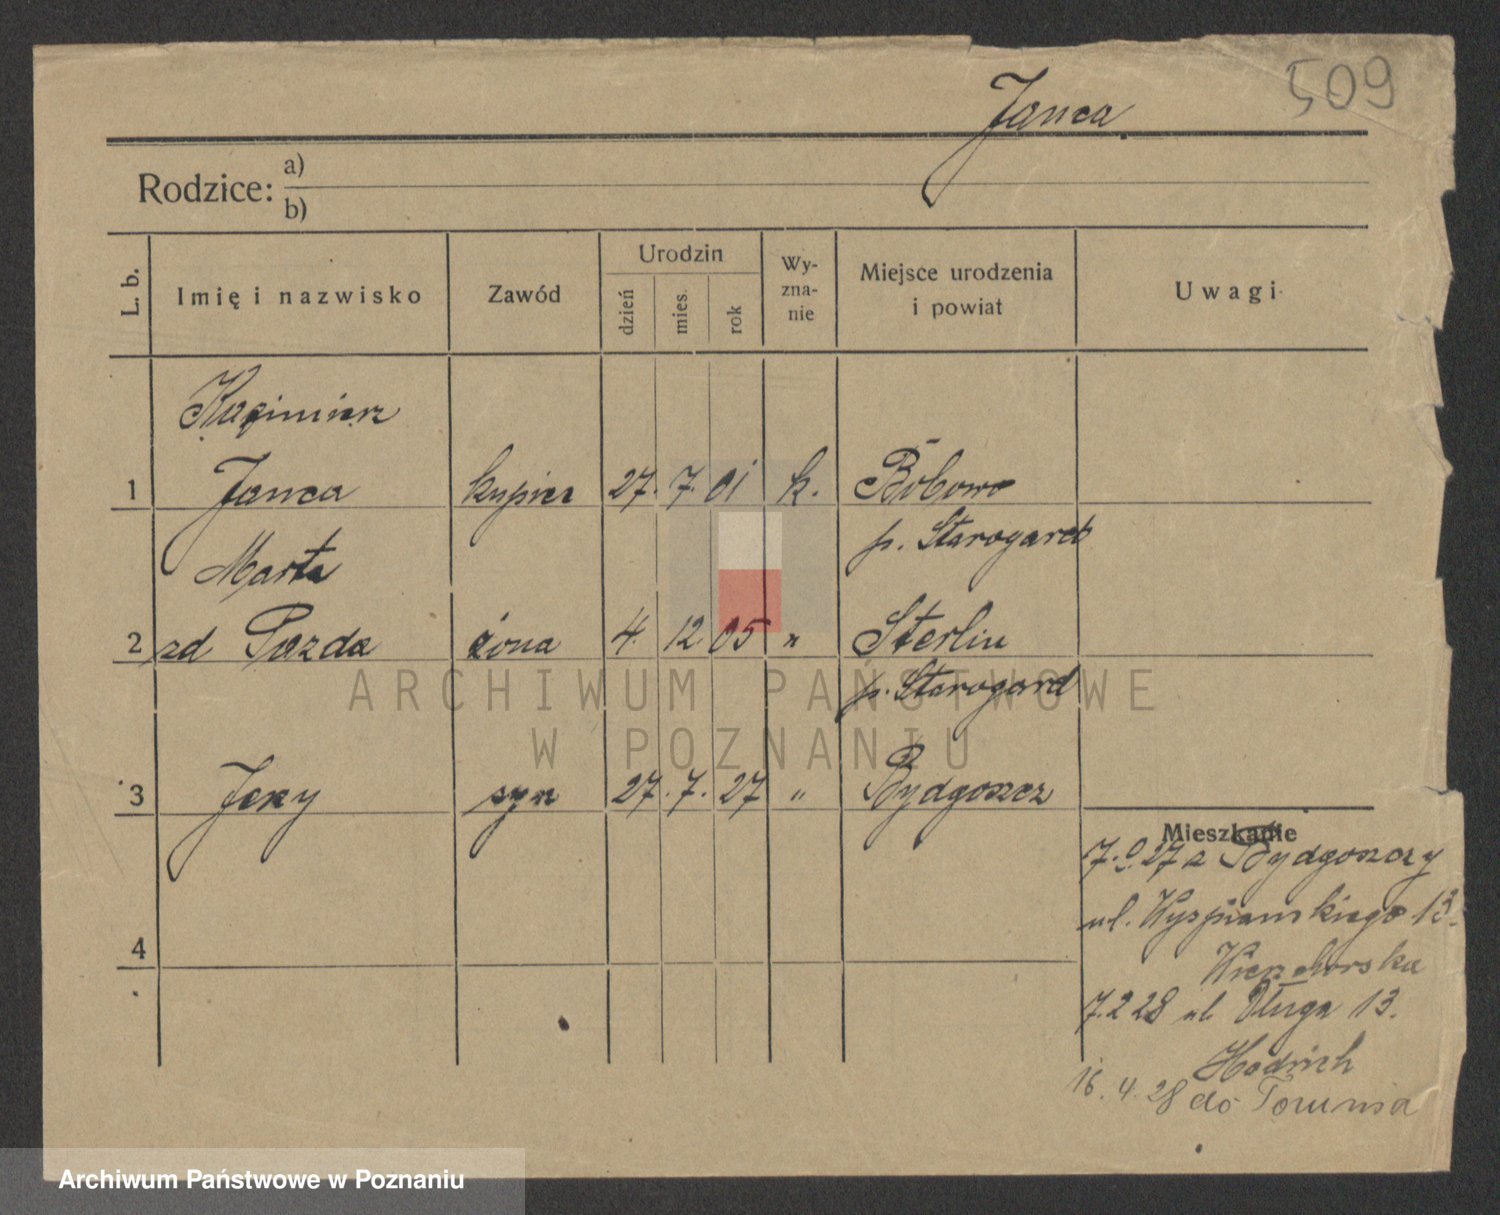 509
Janca
Rodzice: a)
b)
L. b. Imię i nazwisko Zawód Urodzin dzień mies. rok Wy-zna-nie Miejsce urodzenia i powiat Uwagi
Kazimierz
1 Janca kupiec 27. 7. 01 k. Bobowo
p. Starogard
Marta
2 zd Pazda żona 4. 12 05 " Sterlin
p. Starogard
ARCHIWUM PAŃSTWOWE
W POZNANIU
3 Jerzy syn 27. 7. 27 " Bydgoszcz
Mieszkanie
7. 27 z Bydgoszczy
ul. Wyspianskiego 13.
4
7.2 28 ul Długa 13.
16. 4. 28 do Torunia
Archiwum Państwowe w Poznaniu